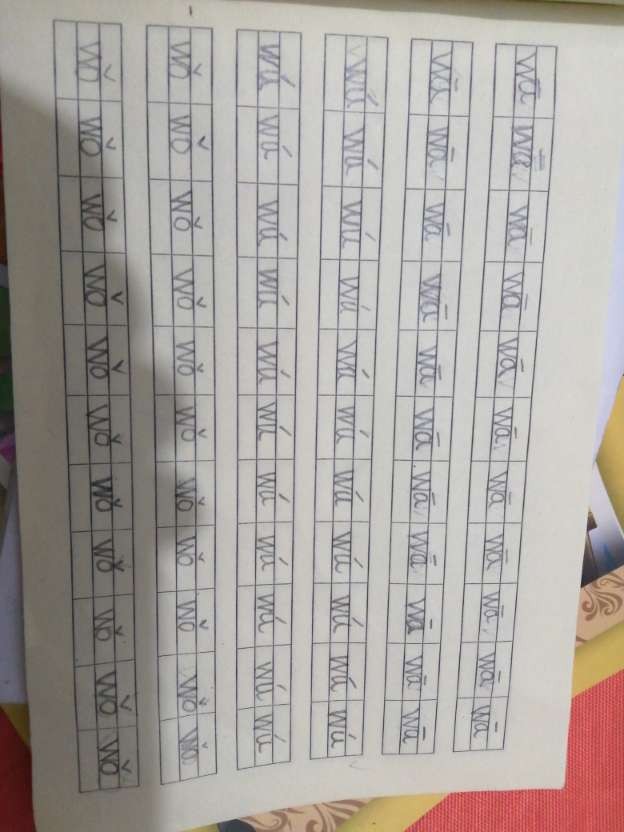 wā wā wā wā wā wā wā wā wā wā wā
wā wā wā wā wā wā wā wā wā wā wā
wá wá wá wá wá wá wá wá wá wá wá
wá wá wá wá wá wá wá wá wá wá wá
wǒ wǒ wǒ wǒ wǒ wǒ wǒ wǒ wǒ wǒ wǒ
wǒ wǒ wǒ wǒ wǒ wǒ wǒ wǒ wǒ wǒ wǒ